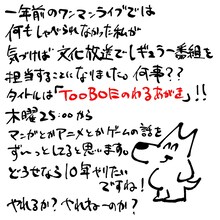 一年前のワンマンライブでは
何もしゃべられなかった私が
気づけば文化放送でレギュラー番組を
担当することになりました。何事??
タイトルは「TOOBOEのわるあがき」!!
木曜25:00から
マンガとかアニメとかゲームの話を
ずーっとしてると思います。
どうせなら10年やりたい
ですね!
やれるか? やれねーのか?